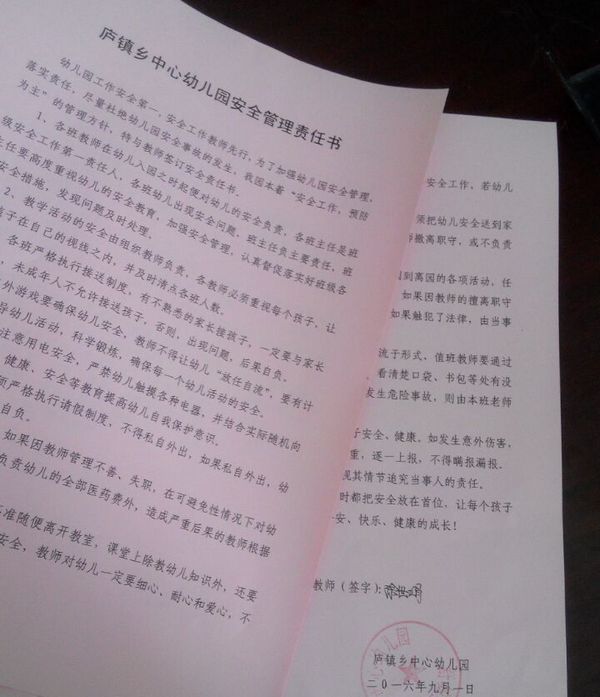 庐镇乡中心幼儿园安全管理责任书
幼儿园工作安全第一，安全工作教师先行，为了加强幼儿园安全管理，
落实责任，尽量杜绝幼儿园安全事故的发生，我园本着“安全工作，预防
为主”的管理方针，特与教师签订安全责任书。
1、各班教师在幼儿入园之时起便对幼儿的安全负责，各班主任是班
级安全工作第一责任人，各班幼儿出现安全问题，班主任负主要责任，班
主任要高度重视幼儿的安全教育，加强安全管理，认真督促落实好班级各
安全措施，发现问题及时处理。
2、教学活动的安全由组织教师负责，各教师必须重视每个孩子，让
孩子在自己的视线之内，并及时清点各班人数。
各班严格执行接送制度，有不熟悉的家长接孩子，一定要与家长
，未成年人不允许接送孩子，否则，出现问题，后果自负。
外游戏要确保幼儿安全，教师不得让幼儿“放任自流”，要有计
导幼儿活动，科学锻炼，确保每一个幼儿活动的安全。
注意用电安全，严禁幼儿触摸各种电器，并结合实际随机向
健康、安全等教育提高幼儿自我保护意识。
须严格执行请假制度，不得私自外出，如果私自外出，幼
自负。
如果因教师管理不善、失职，在可避免性情况下对幼
负责幼儿的全部医药费外，造成严重后果的教师根据
准随便离开教室，课堂上除教幼儿知识外，还要
安全，教师对幼儿一定要细心、耐心和爱心，不
安全工作，若幼儿
须把幼儿安全送到家
师撤离职守，或不负责
园到离园的各项活动，任
如果因教师的擅离职守
如果触犯了法律，由当事
流于形式，值班教师要通过
，看清楚口袋、书包等处有没
发生危险事故，则由本班老师
子安全、健康，如发生意外伤害，
重，逐一上报，不得瞒报漏报。
视其情节追究当事人的责任。
时都把安全放在首位，让每个孩子
安、快乐、健康的成长！
教师（签字）：
庐镇乡中心幼儿园
二〇一六年九月一日